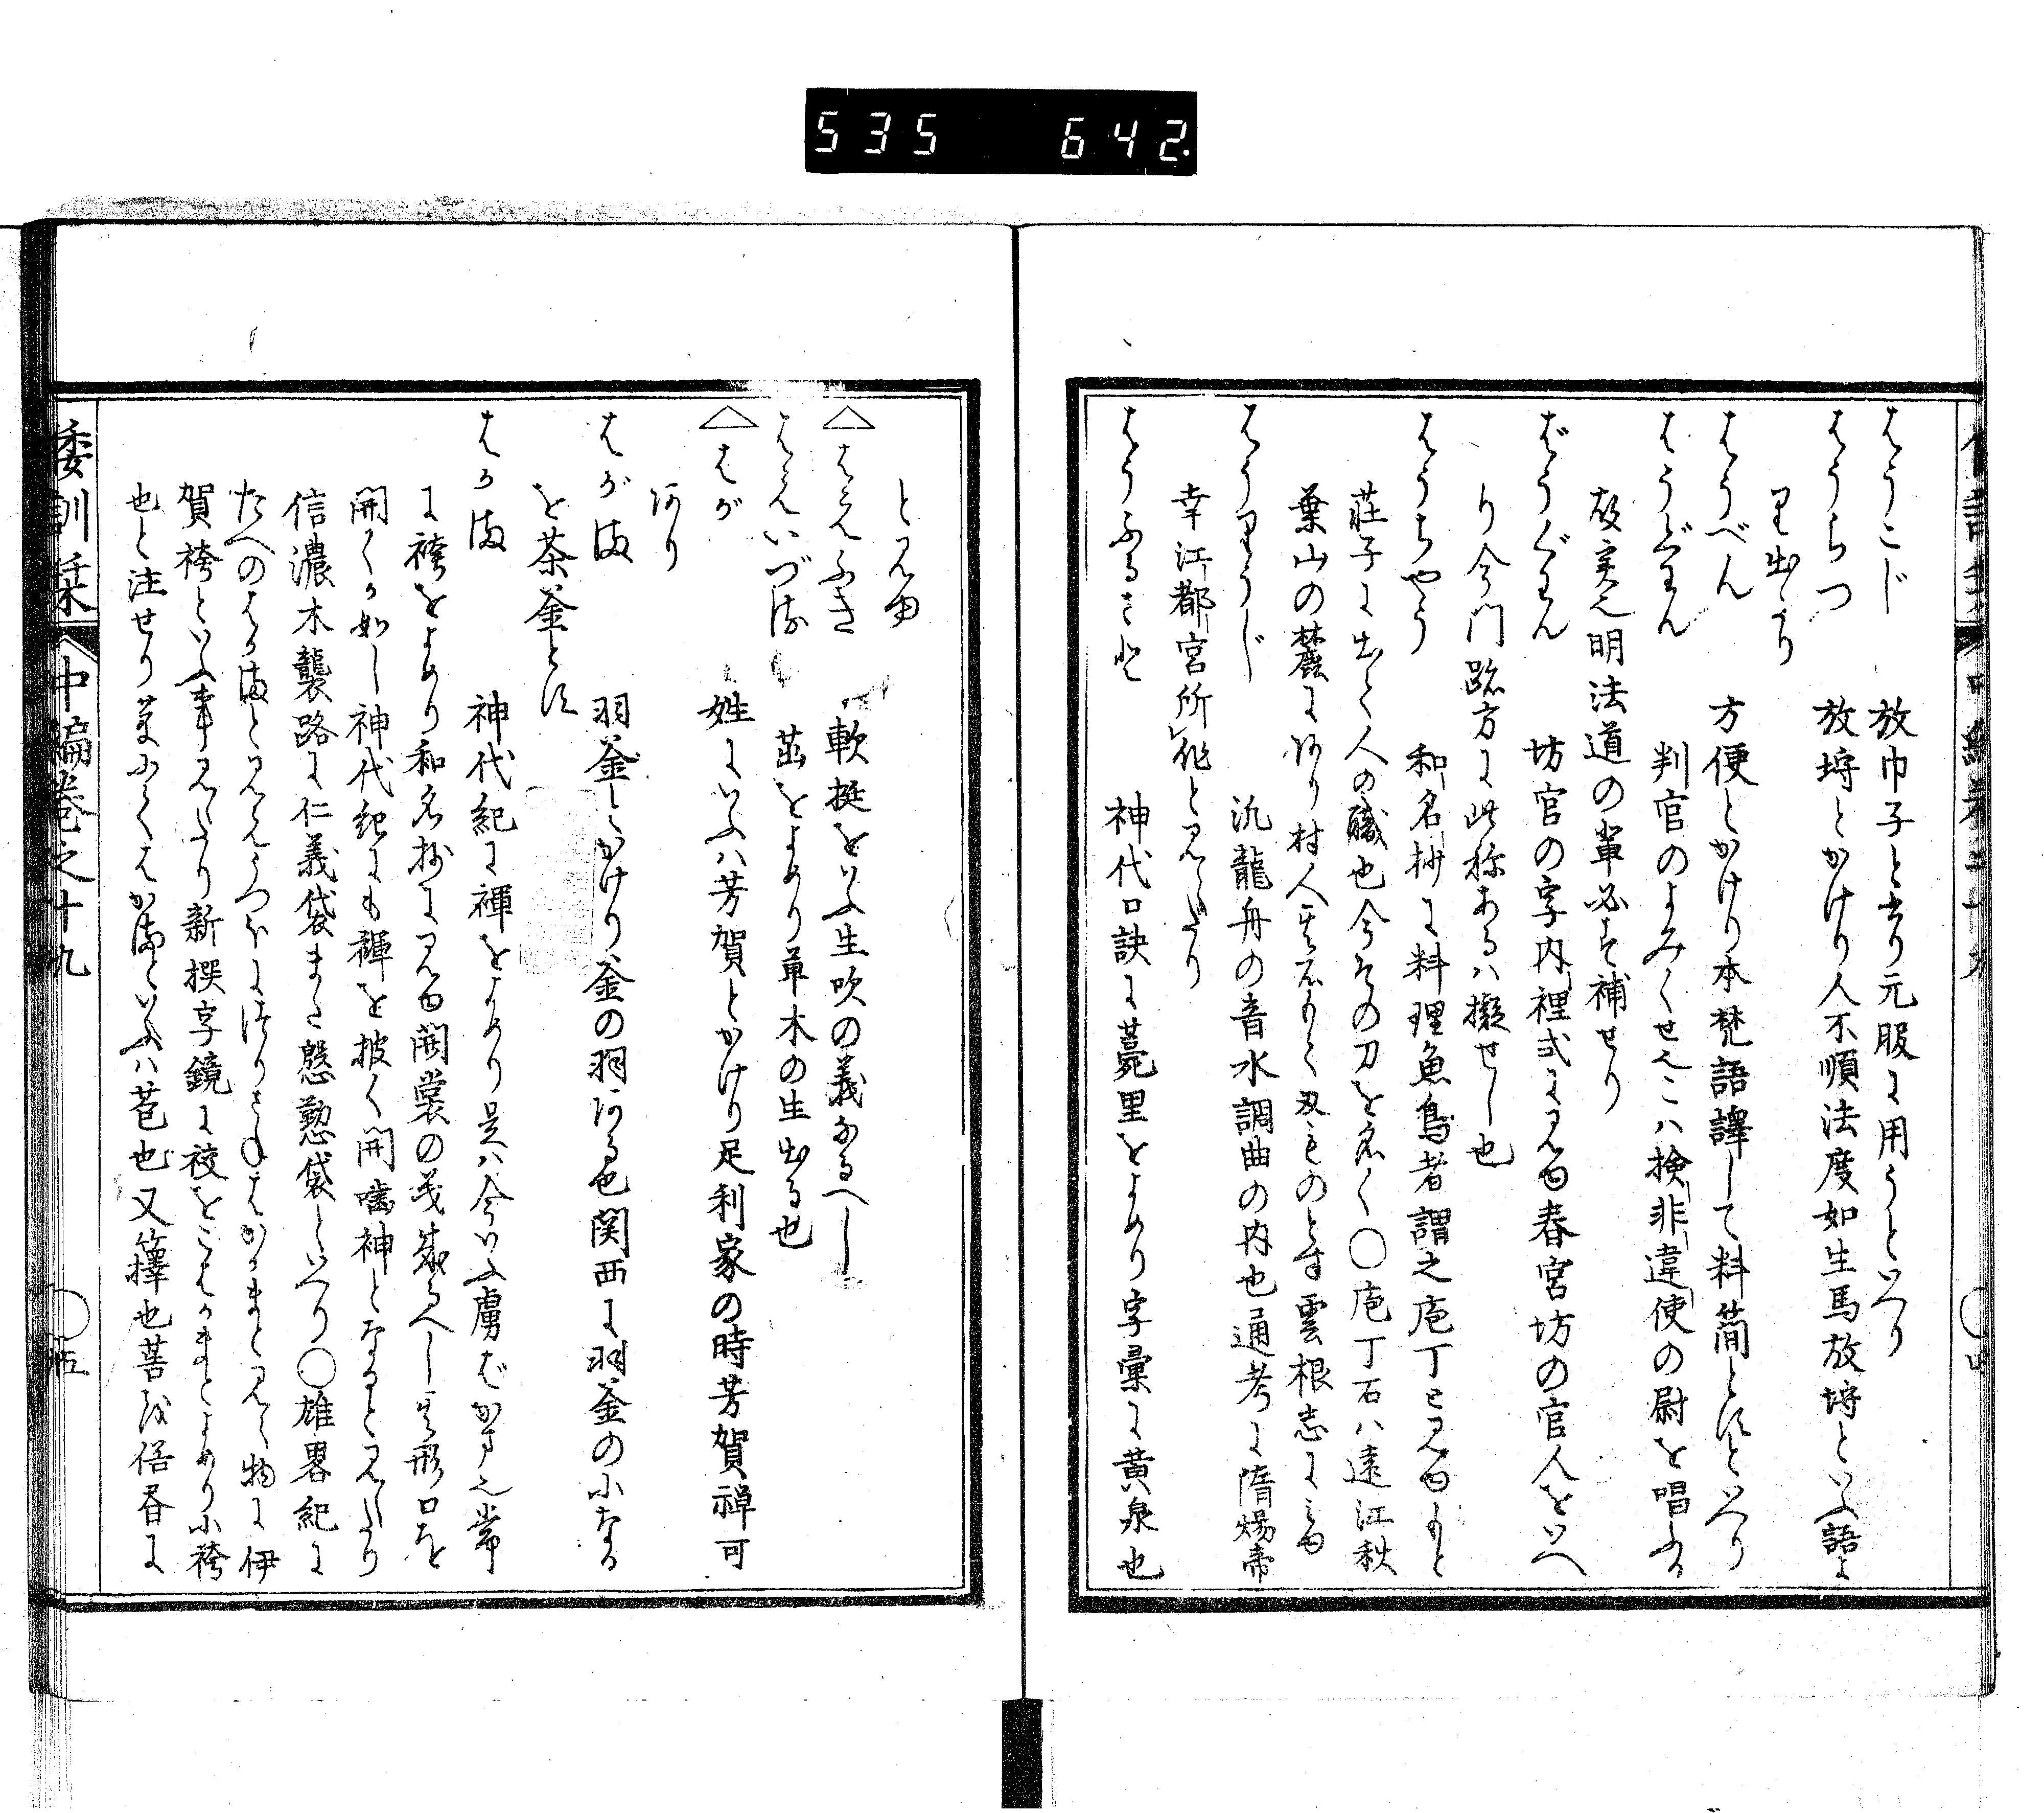 535 642
はうこじ 放巾子と書り元服に用うといへり
はうらつ 放埒とかけり人不順法度如生馬放埒といふ語よ
り出たり
はうべん 方便とかけり本梵語譯して料簡とすといへり
はうぐわん 判官のよみくせ也こは検非違使の尉を唱ふる
故実也明法道の輩必す補せり
ばうぐわん 坊官の字内裡式に見ゆ春宮坊の官人をいへ
り今門跡方に此称あるハ擬せし也
はうちやう 和名抄に料理魚鳥者謂之庖丁と見ゆもと
荘子に出て人の職也今その刀を名く〇庖丁石ハ遠江秋
葉山の麓にあり村人其石もて刄ものとす雲根志にみゆ
はうりうじ 汎龍舟の音水調曲の内也通考に隋煬帝
幸江都宮所作と見えたり
はうふるさと 神代口訣に薨里をよめり字彙に黄泉也
と見ゆ
△はえふき 軟挺をいふ生吹の義なるへし
はえいづる 茁をよめり草木の生出る也
△はが 姓にいふハ芳賀とかけり足利家の時芳賀禅可
あり
はがま 羽釜とかけり釜の羽ある也関西に羽釜の小なる
を茶釜とす
はかま 神代紀に褌をよめり是ハ今いふ膚ばかま也常
に袴をよめり和名抄に見ゆ開裳の義成へし其形口を
開くか如し神代紀にも褌を披く開囓神となると見えたり
信濃木襲路に仁義袋また慇懃袋といへり〇雄畧紀に
たへのはかまと見え
賀袴といふ事見えたり新撰字鏡に衳をこはかまとよめり小袴
也と注せり
委訓栞 中編巻之十九 〇五